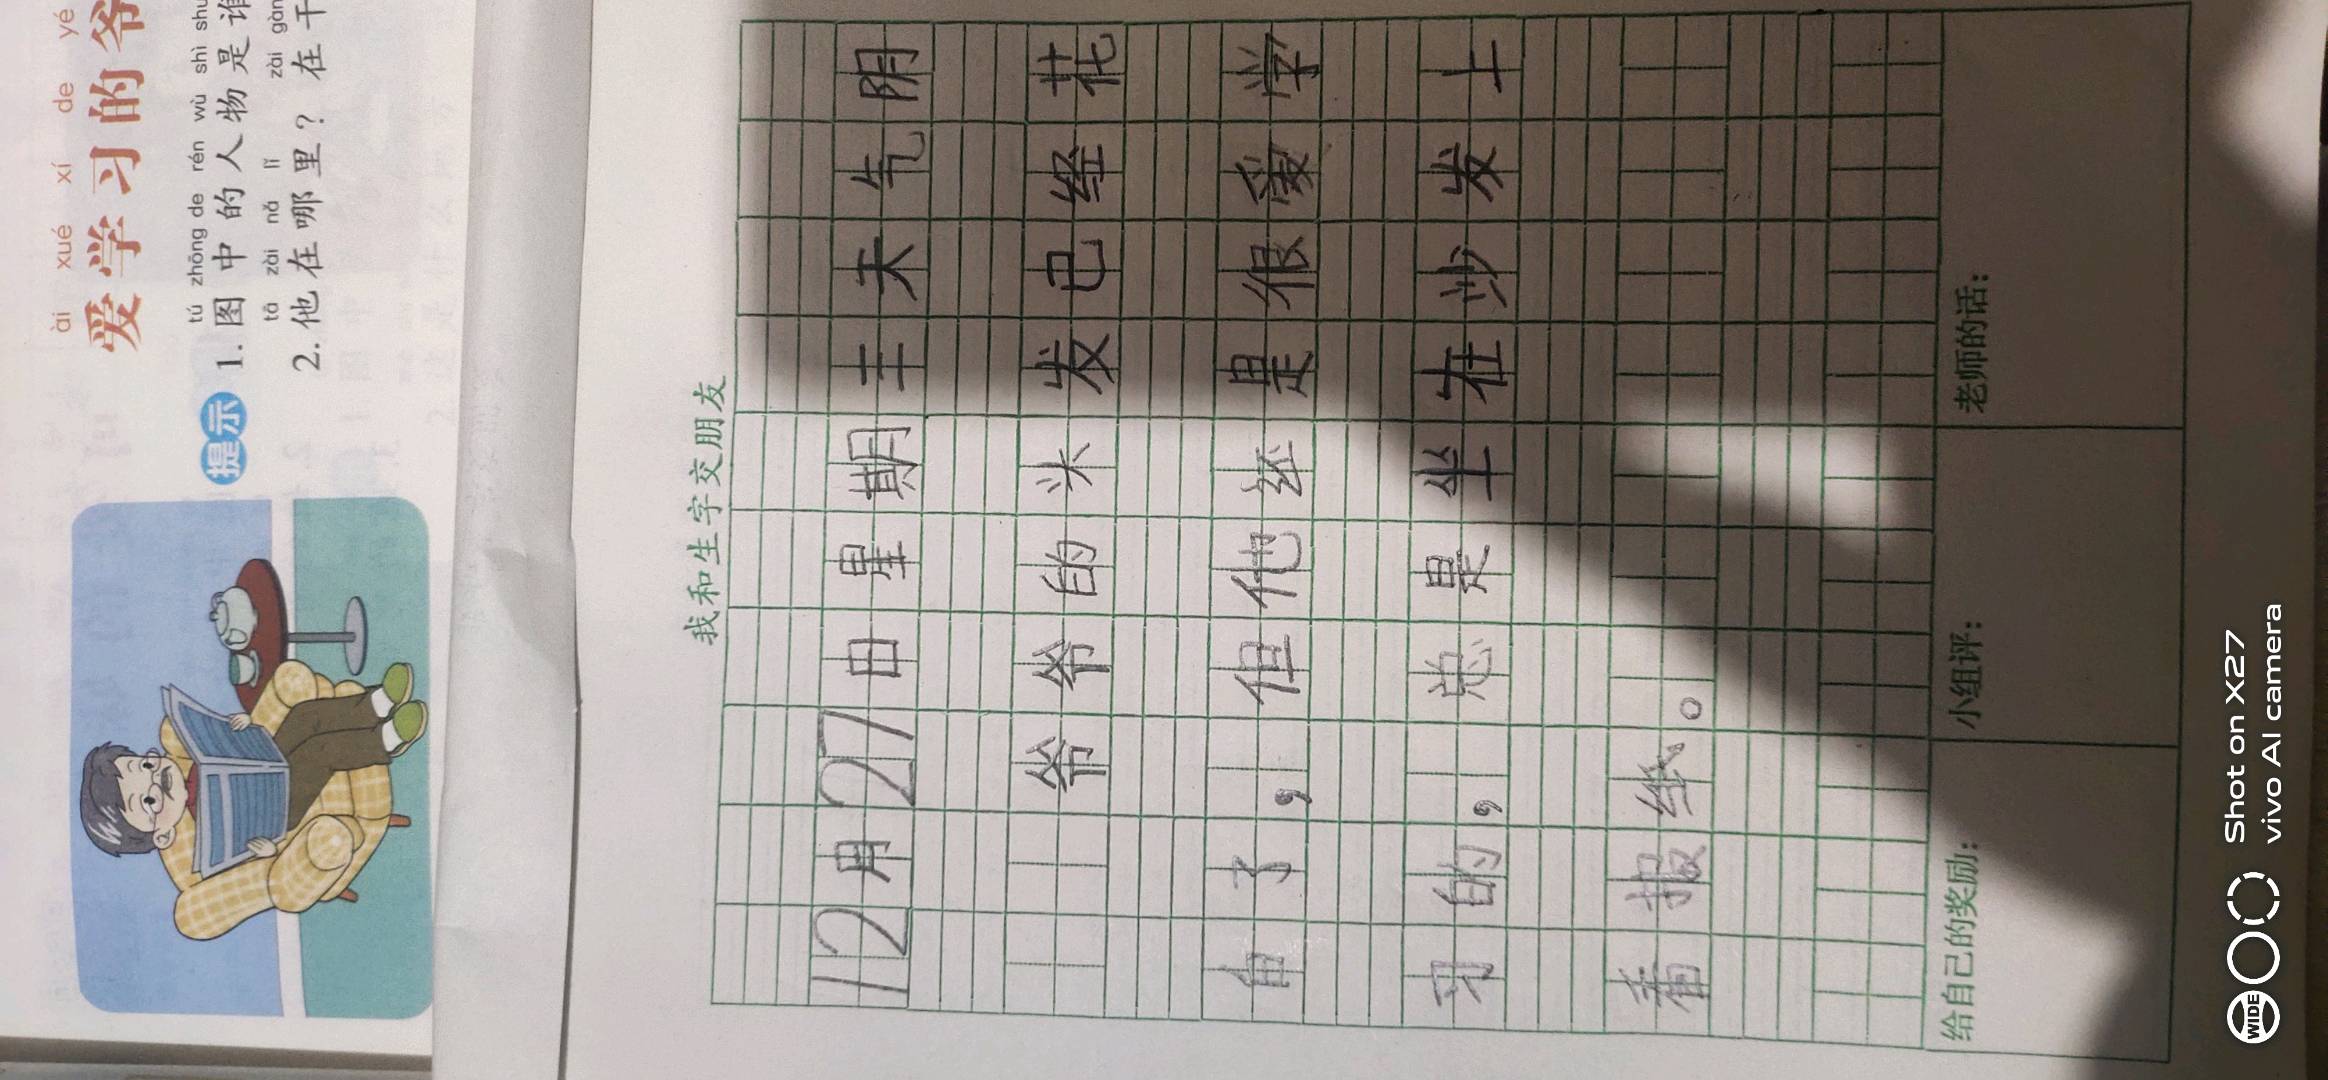 ài xué xí de yé
爱学习的爷
提示
tú zhōng de rén wù shì
1.图中的人物是谁
tā zài nǎ lǐ zài gàn
2.他在哪里？在干
我和生字交朋友
12月27日星期 天气阴
爷爷的头发已经花
白了，但他还是很爱学
习的，总是坐在沙发上
看报纸。
给自己的奖励： 小组评： 老师的话：
WIDE
Shot on X27
vivo AI camera